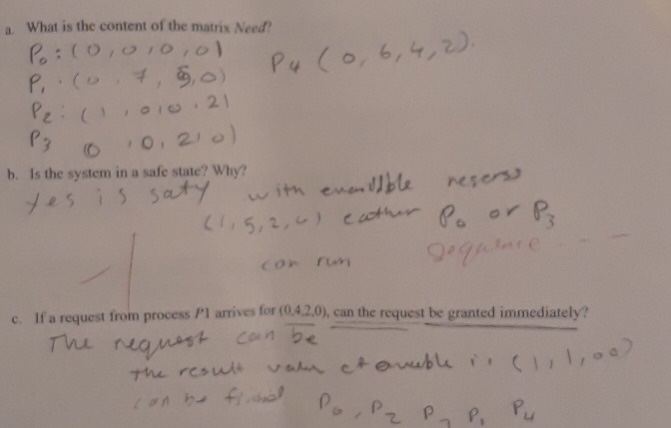 a. What is the content of the matrix Need?
P0 : (0,0,0,0)
P1 . (0 . 7, 5,0)
P4 (0, 6, 4, 2).
P2 : (1, 0,0, 2)
P3 (0, 0, 2, 0)
b. Is the system in a safe state? Why?
Yes is saty with
(1,5,2,0) eather P0 or P3
can run
Sequence . . .
c. If a request from process P1 arrives for (0,4,2,0), can the request be granted immediately?
The request can be
the result valu of is (1,1,0 0)
can be P0, P2 P3 P1 P4